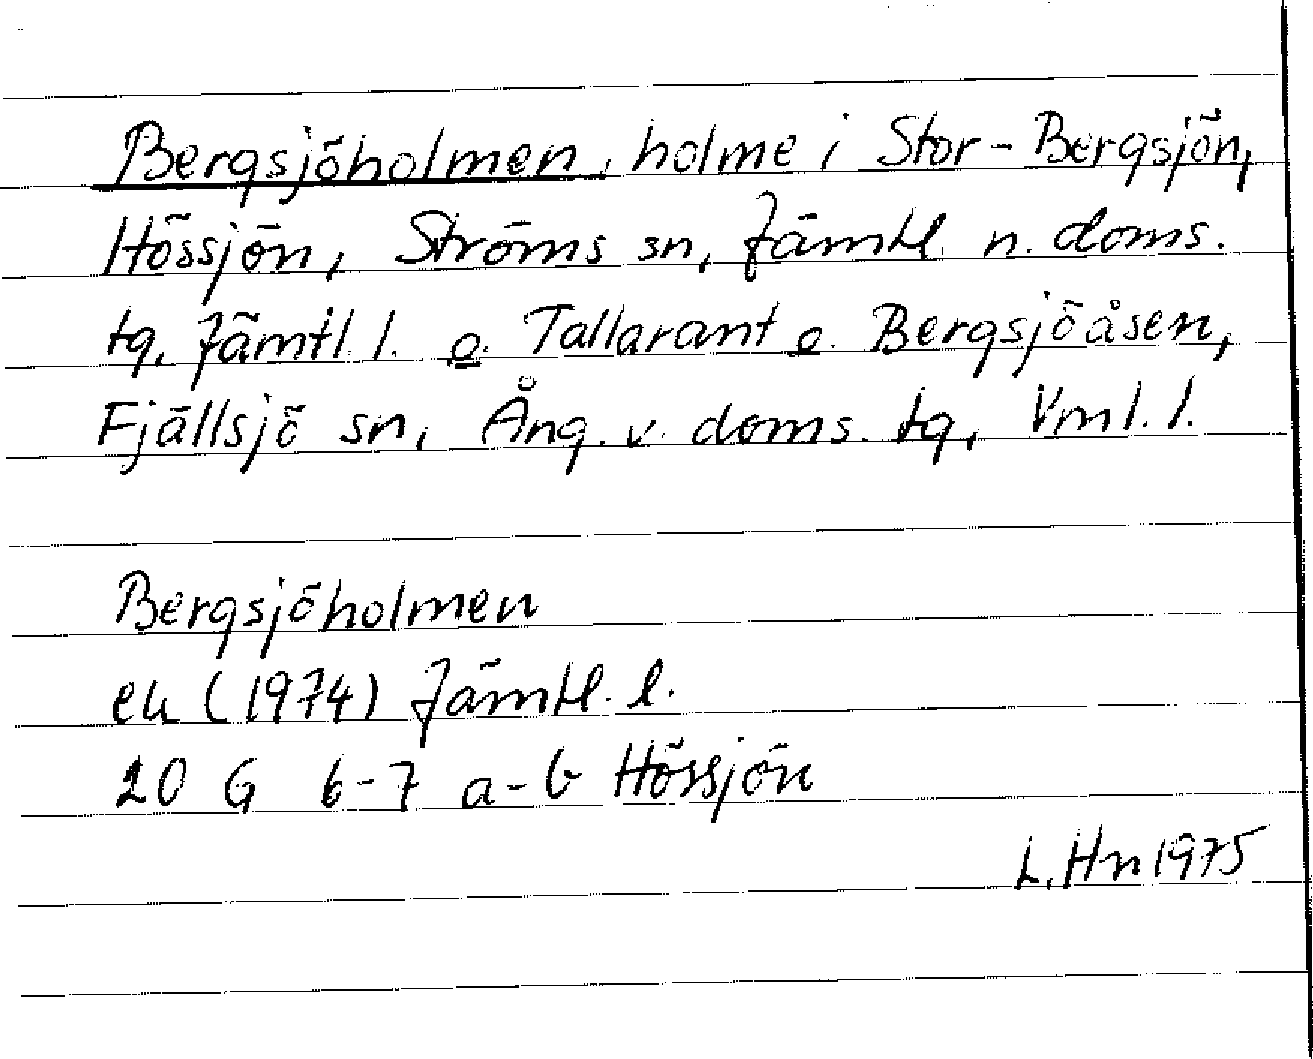 Bergsjöholmen, holme i Stor-Bergsjön,
Hössjön, Ströms sn, Jämtl. n. doms.
tg, Jämtl. l. o. Tallarant o. Bergsjöåsen,
Fjällsjö sn, Ång. v. doms. tg, Vml. l.
Bergsjöholmen
ek (1974) Jämtl. l.
20 G 6-7 a-b Hössjön
L. Hn 1975